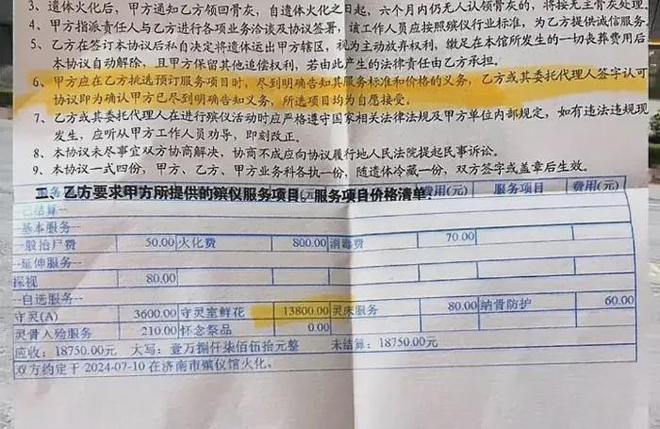 3、遗体火化后，甲方通知乙方领回骨灰，自遗体火化之日起，六个月内仍无人认领骨灰的，将按无主骨灰处理。
4、甲方指派责任人与乙方进行各项业务洽谈及协议签署，该工作人员应按照殡仪行业标准，为乙方提供诚信服务。
5、乙方在签订本协议后私自决定将遗体运出甲方辖区，视为主动放弃权利，缴足在本馆所发生的一切丧葬费用后
本协议自动解除，且甲方保留其他追偿权利，若由此产生的法律责任由乙方承担。
6、甲方应在乙方挑选预订服务项目时，尽到明确告知其服务标准和价格的义务，乙方或其委托代理人签字认可
协议即为确认甲方已尽到明确告知义务，所选项目均为自愿接受。
7、乙方或其委托代理人在进行殡仪活动时应严格遵守国家相关法律法规及甲方单位内部规定，如有违法违规现
发生，应听从甲方工作人员劝导，即刻改正。
8、本协议未尽事宜双方协商解决，协商不成应向协议履行地人民法院提起民事诉讼。
9、本协议一式四份，甲方、乙方、甲方业务科各执一份，随遗体冷藏一份，双方签字或盖章后生效。
二、乙方要求甲方所提供的殡仪服务项目、服务项目价格清单：
费用(元) 服务项目 费用(元)
--已结算--
--基本服务--
一般抬尸费 50.00 火化费 800.00 消毒费 70.00
--延伸服务--
探视 80.00
--自选服务--
守灵(A) 3600.00 守灵室鲜花 13800.00 灵床服务 80.00 纳骨防护 60.00
灵骨入殓服务 210.00 怀念祭品 0.00
应收：18750.00元 大写：壹万捌仟柒佰伍拾元整 未结算：18750.00元
双方约定于 2024-07-10 在济南市殡仪馆火化。